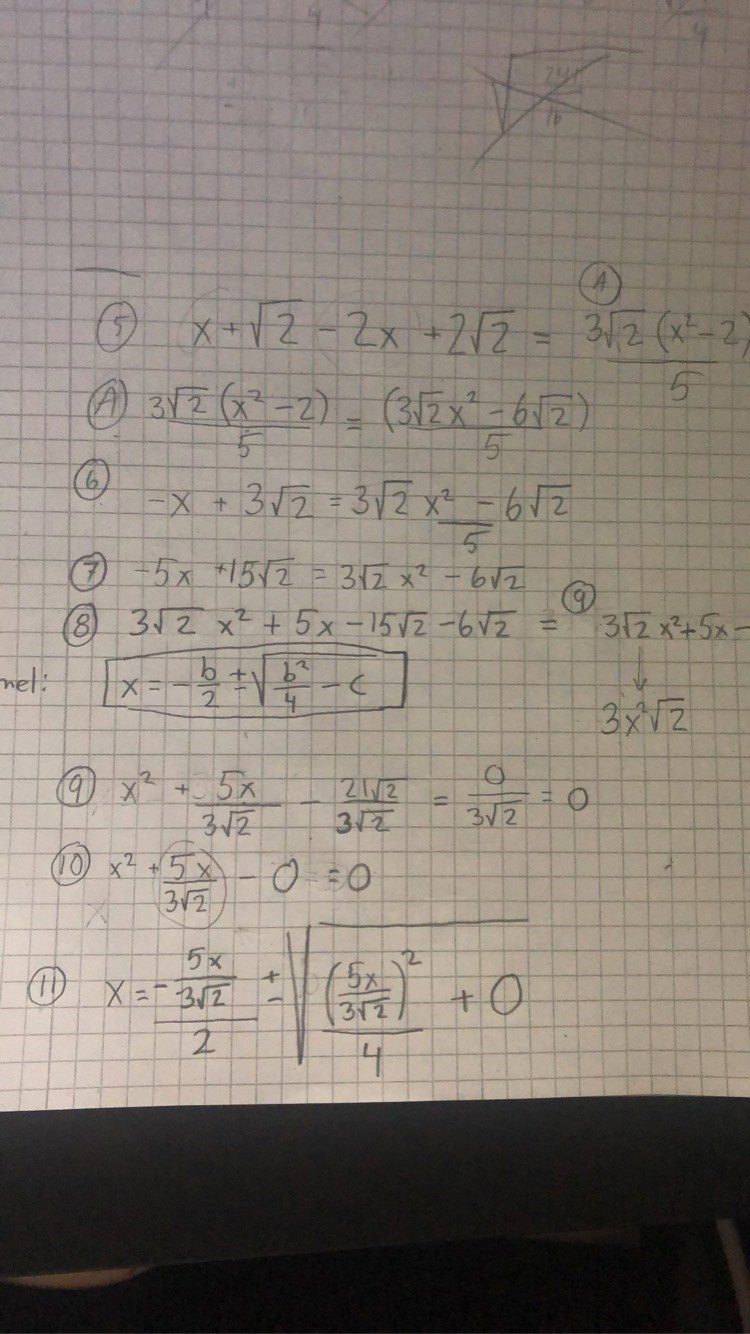 4
4
√24/16
⑤ x + √2 - 2x + 2√2 = Ⓐ 3√2 (x² - 2)/5
Ⓐ 3√2 (x² - 2)/5 = (3√2x² - 6√2)/5
⑥ -x + 3√2 = 3√2 x² - 6√2/5
⑦ -5x + 15√2 = 3√2 x² - 6√2
⑧ 3√2 x² + 5x - 15√2 - 6√2 = ⑨ 3√2 x² + 5x -
↓
3x²√2
mel: x = - b/2 ± √b²/4 - c
⑨ x² + 5x/3√2 - 21√2/3√2 = 0/3√2 = 0
⑩ x² + 5x/3√2 - 0 = 0
x
⑪ x = - 5x/3√2/2 ± √(5x/3√2)²/4 + 0